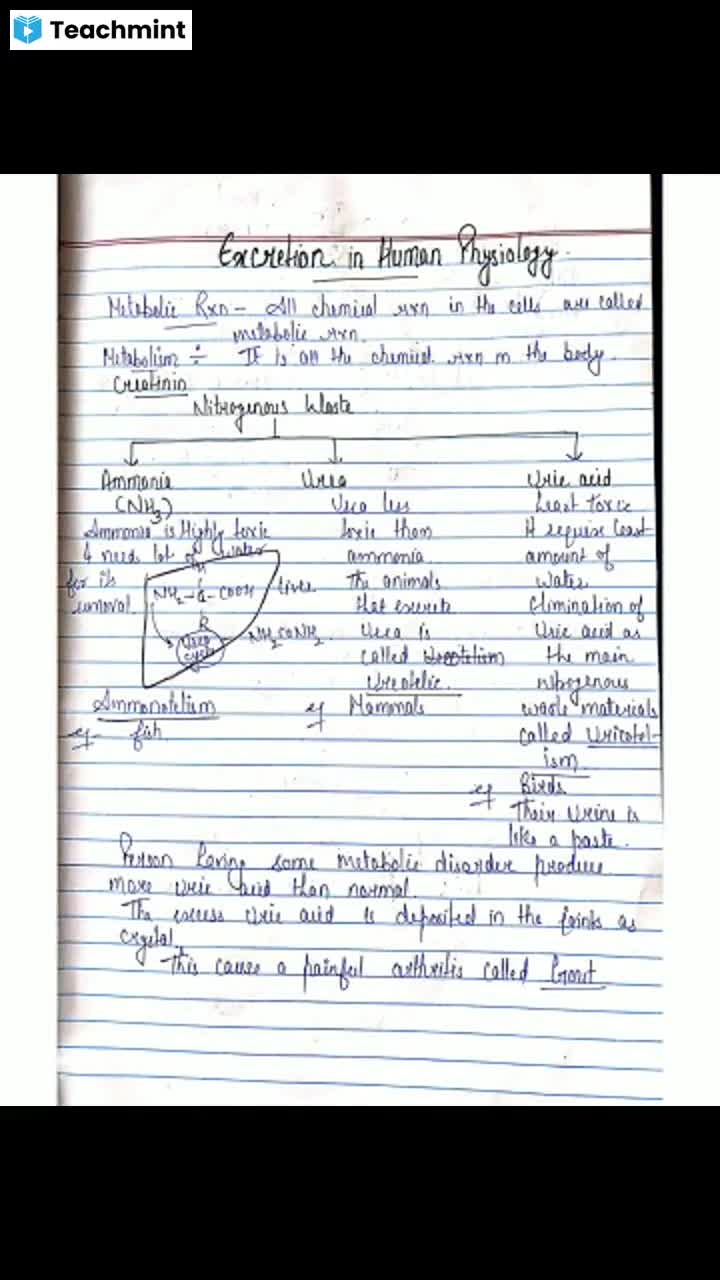 Teachmint
Excretion in Human Physiology
Metabolic Rxn - All chemical rxn in the cells are called
metabolic rxn.
Metabolism ÷ It is all the chemical rxn in the body.
Creatinin
Nitrogenous Waste
Ammonia
(NH3)
Ammonia is Highly toxic
& need lot of water
for its
removal.
H
NH2-C-COOH
R
Urea
cycle
liver
NH2CONH2
Ammonotelism
eg- fish
Urea
Urea less
toxic than
ammonia.
The animals
that excrete
Urea is
called
Ureotelic.
eg Mammals
Uric acid
Least toxic
It require least
amount of
water
Elimination of
Uric acid as
the main
nitrogenous
waste materials
called Uricotel-
ism.
eg Birds
Their Urine is
like a paste.
Person having some metabolic disorder produce
more uric acid than normal.
The excess Uric acid is deposited in the joints as
crystal.
This cause a painful arthritis called Gout